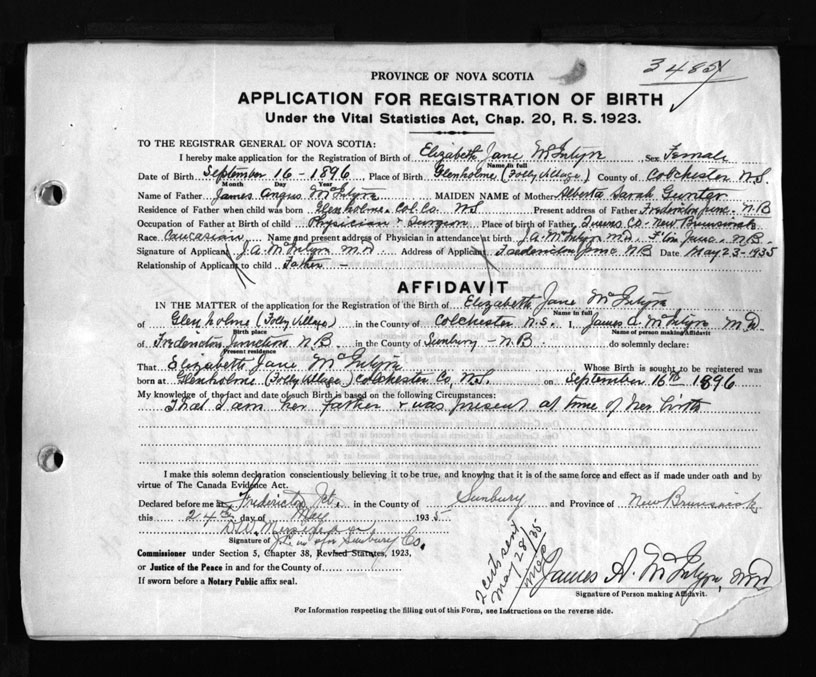 34854
PROVINCE OF NOVA SCOTIA
APPLICATION FOR REGISTRATION OF BIRTH
Under the Vital Statistics Act, Chap. 20, R. S. 1923.
TO THE REGISTRAR GENERAL OF NOVA SCOTIA:
I hereby make application for the Registration of Birth of Elizabeth Jane McIntyre Sex Female
Name in full
Date of Birth September 16 - 1896 Place of Birth Glenholme (Folly Village) County of Colchester N.S.
Month Day Year
Name of Father James Angus McIntyre MAIDEN NAME of Mother Alberta Sarah Gunter
Residence of Father when child was born Glenholme Col. Co. N S Present address of Father Fredericton Junc. N.B
Occupation of Father at Birth of child Physician & Surgeon Place of birth of Father Queens Co. New Brunswick
Race Caucasian Name and present address of Physician in attendance at birth J.A. McIntyre M.D. F'ton Junc. N.B.
Signature of Applicant J.A. McIntyre M D Address of Applicant Fredericton Junc N B Date May 23 - 1935
Relationship of Applicant to child Father -
AFFIDAVIT
IN THE MATTER of the application for the Registration of the Birth of Elizabeth Jane McIntyre
Name in full
of Glenholme (Folly Village) in the County of Colchester N.S. I, James A. McIntyre M D
Birth place Name of person making Affidavit
of Fredericton Junction N.B. in the County of Sunbury - N.B. do solemnly declare:
Present residence
That Elizabeth Jane McIntyre Whose Birth is sought to be registered was
born at Glenholme (Folly Village) Colchester Co, N.S. on September 16th 1896
My knowledge of the fact and date of such Birth is based on the following Circumstances:
That I am her father & was present at time of her birth
I make this solemn declaration conscientiously believing it to be true, and knowing that it is of the same force and effect as if made under oath and by
virtue of The Canada Evidence Act.
Declared before me at Fredericton Jct. in the County of Sunbury and Province of New Brunswick
this 24th day of May 1935
Signature of Sunbury Co.
Commissioner under Section 5, Chapter 38, Revised Statutes, 1923,
or Justice of the Peace in and for the County of
If sworn before a Notary Public affix seal.
sent
May 28/35
James A. McIntyre, MD
Signature of Person making Affidavit.
For Information respecting the filling out of this Form, see Instructions on the reverse side.